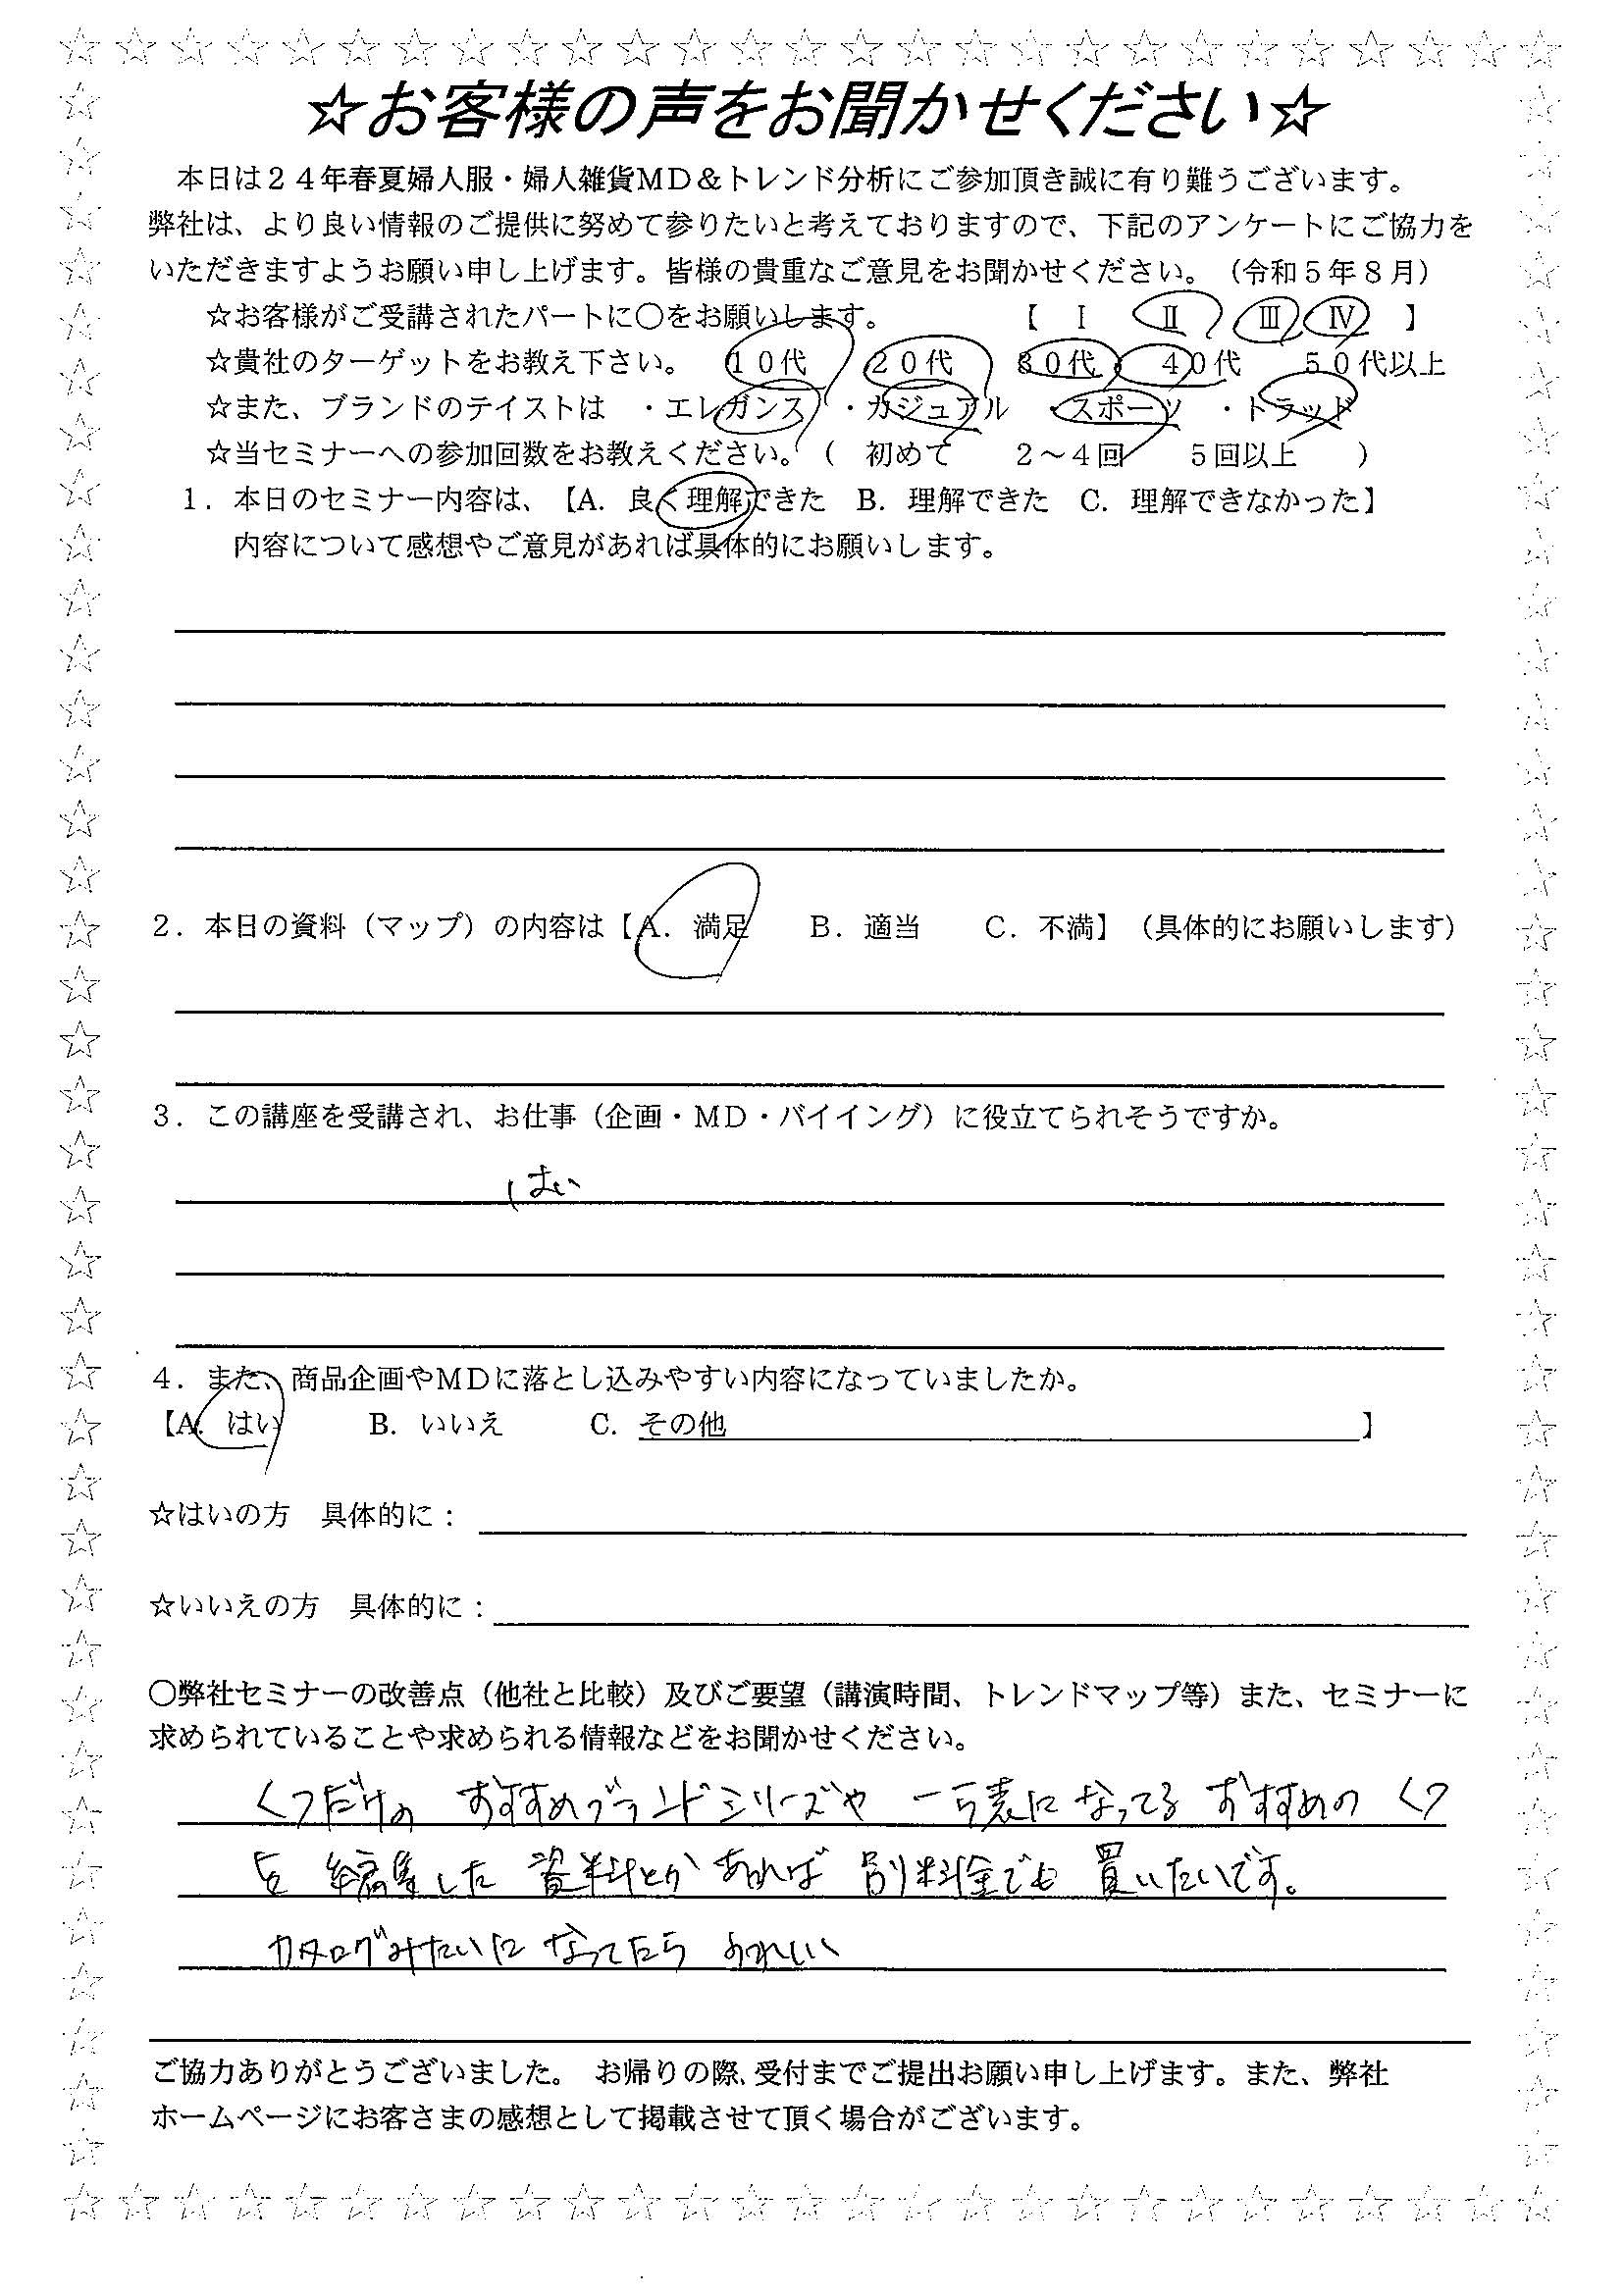 ☆お客様の声をお聞かせください☆
本日は２４年春夏婦人服・婦人雑貨ＭＤ＆トレンド分析にご参加頂き誠に有り難うございます。
弊社は、より良い情報のご提供に努めて参りたいと考えておりますので、下記のアンケートにご協力を
いただきますようお願い申し上げます。皆様の貴重なご意見をお聞かせください。（令和５年８月）
☆お客様がご受講されたパートに〇をお願いします。　【　Ⅰ　Ⅱ　Ⅲ　Ⅳ　】
☆貴社のターゲットをお教え下さい。　１０代　２０代　３０代　４０代　５０代以上
☆また、ブランドのテイストは　・エレガンス　・カジュアル　・スポーツ　・トラッド
☆当セミナーへの参加回数をお教えください。（　初めて　２～４回　５回以上　）
１．本日のセミナー内容は、【A．良く理解できた　B．理解できた　C．理解できなかった】
内容について感想やご意見があれば具体的にお願いします。
２．本日の資料（マップ）の内容は【A．満足　B．適当　C．不満】（具体的にお願いします）
３．この講座を受講され、お仕事（企画・ＭＤ・バイイング）に役立てられそうですか。
はい
４．また、商品企画やＭＤに落とし込みやすい内容になっていましたか。
【A．はい　B．いいえ　C．その他　】
☆はいの方　具体的に：
☆いいえの方　具体的に：
〇弊社セミナーの改善点（他社と比較）及びご要望（講演時間、トレンドマップ等）また、セミナーに
求められていることや求められる情報などをお聞かせください。
くつだけの おすすめブランドシリーズや 一ラ表になってる おすすめの くつ
を 編集した 資料とか あれば 別料金でも 買いたいです。
カタログみたいに なってたら うれしい
ご協力ありがとうございました。　お帰りの際、受付までご提出お願い申し上げます。また、弊社
ホームページにお客さまの感想として掲載させて頂く場合がございます。